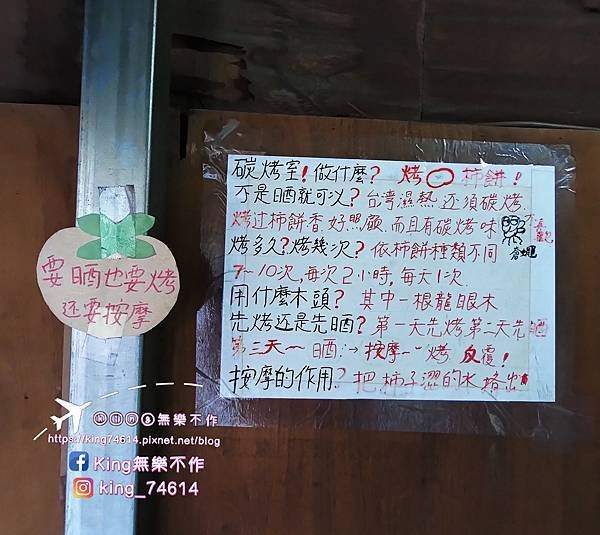 要晒也要烤
还要按摩
碳烤室!做什麼? 烤〇柿餅!
不是晒就可以? 台湾濕熱 还須碳烤.
烤过柿餅香.好照顧.而且有碳烤味
烤多久?烤幾次? 依柿餅種類不同
7~10次,每次2小時,每天1次.
用什麼木頭? 其中一根龍眼木
先烤还是先晒? 第一天先烤第二天先晒
第三天~ 晒→按摩→烤 反覆!
按摩的作用? 把柿子澀的水擠出
無樂不作
https://king74614.pixnet.net/blog
King無樂不作
king_74614